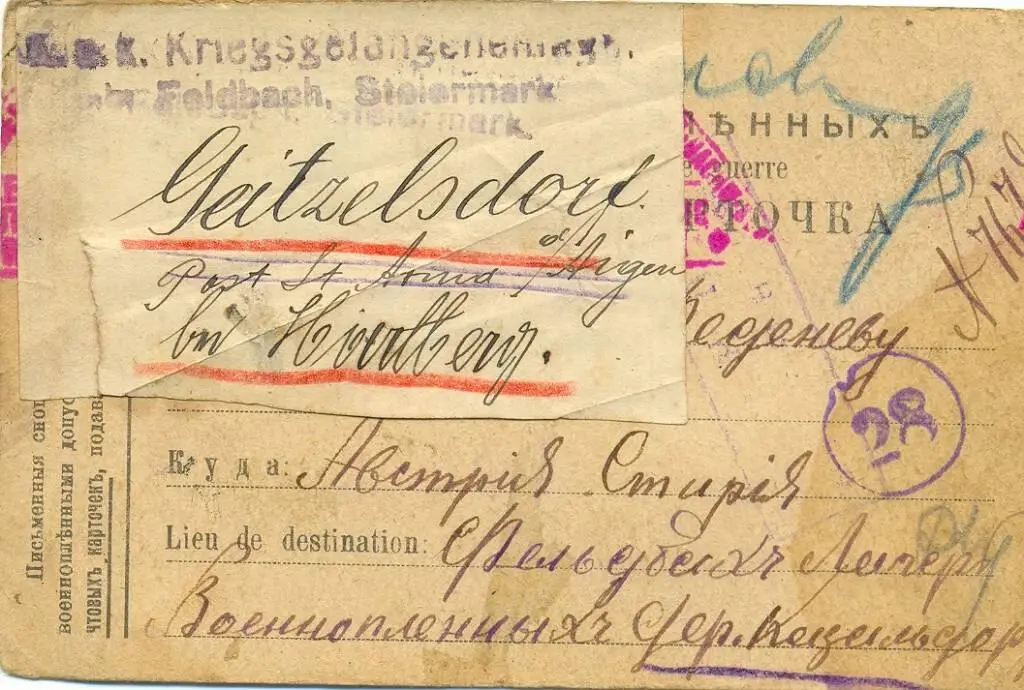 K. u. k. Kriegsgefangenenlager
Feldbach, Steiermark
Steiermark
Geitzelsdorf.
Post St Anna a/Aigen
bei
ЛѢННЫХЪ
e guerre
РТОЧКА
N 767
Леденеву
28
Куда: Австрія Стирія
Lieu de destination: Фельдбахъ Лагерь
Военнопленныхъ Дер. Кецельсдор
Письменныя сно
военноплѣнными допус
чтовыхъ карточекъ, подава